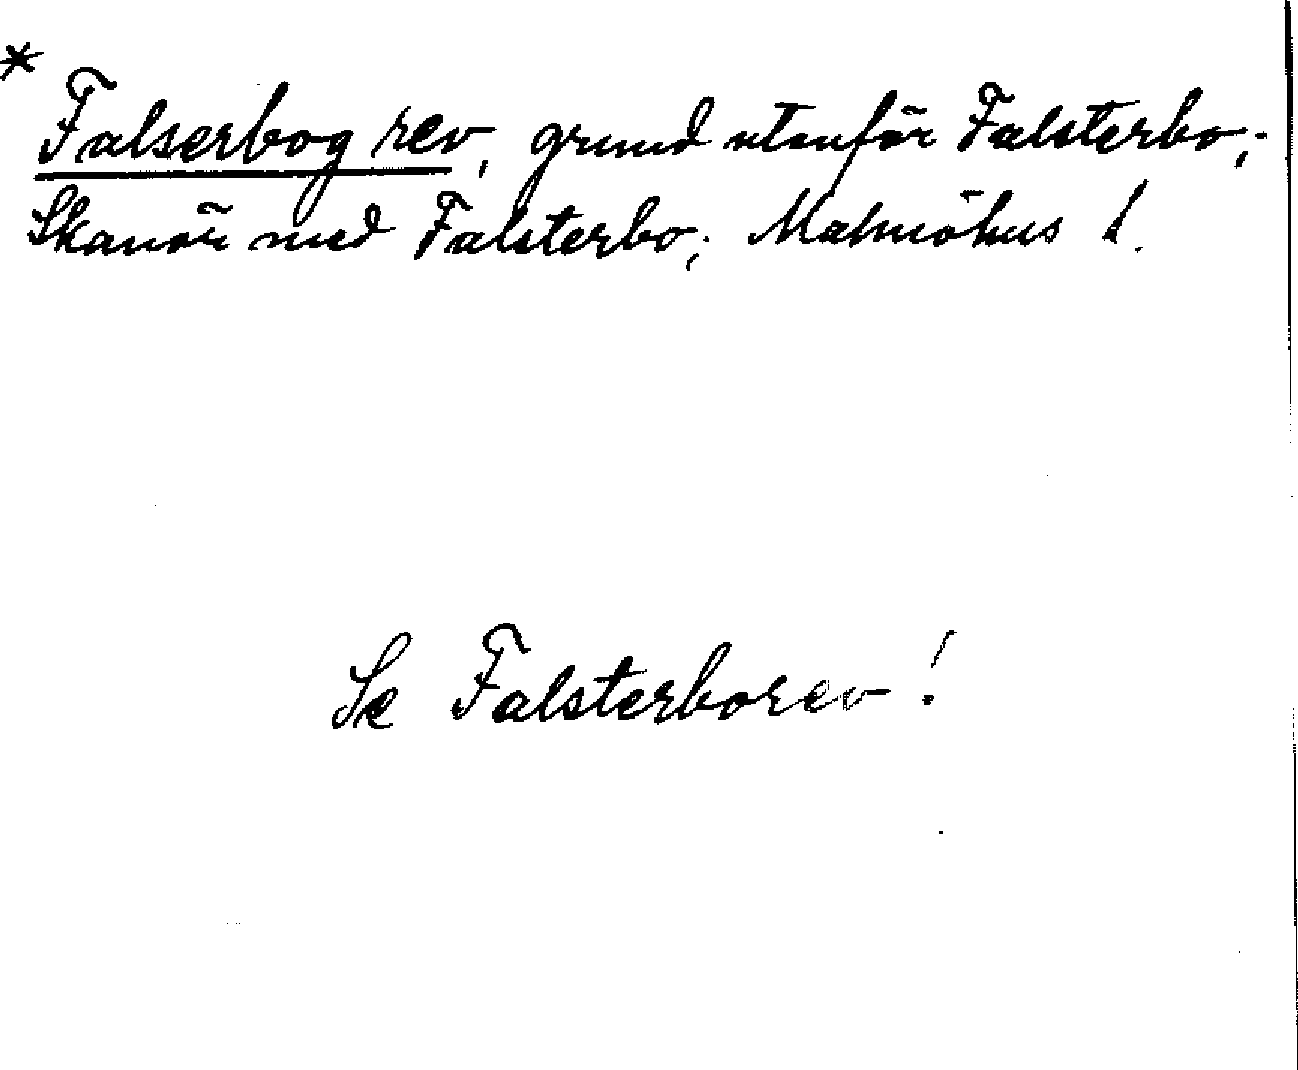 *
Falserbog rev, grund utanför Falsterbo;
Skanör med Falsterbo; Malmöhus l.
Se Falsterborev!